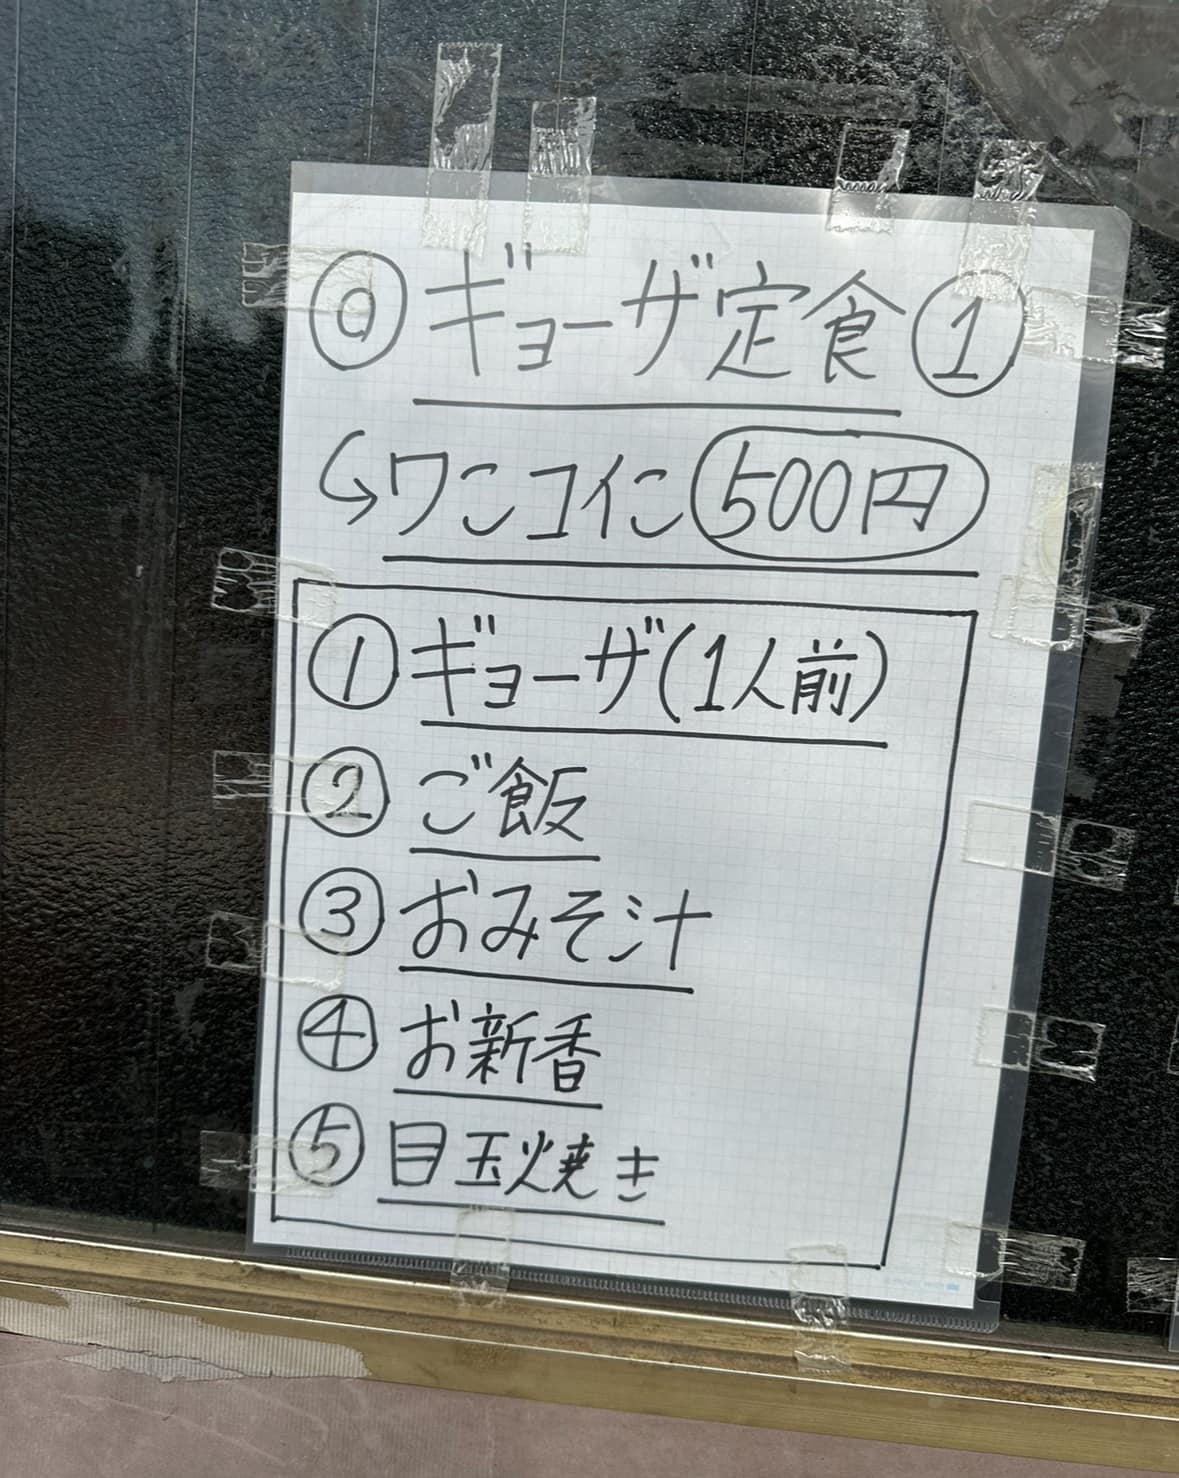 ◎ギョーザ定食①
↪ワンコイン500円
①ギョーザ(1人前)
②ご飯
③おみそ汁
④お新香
⑤目玉焼き